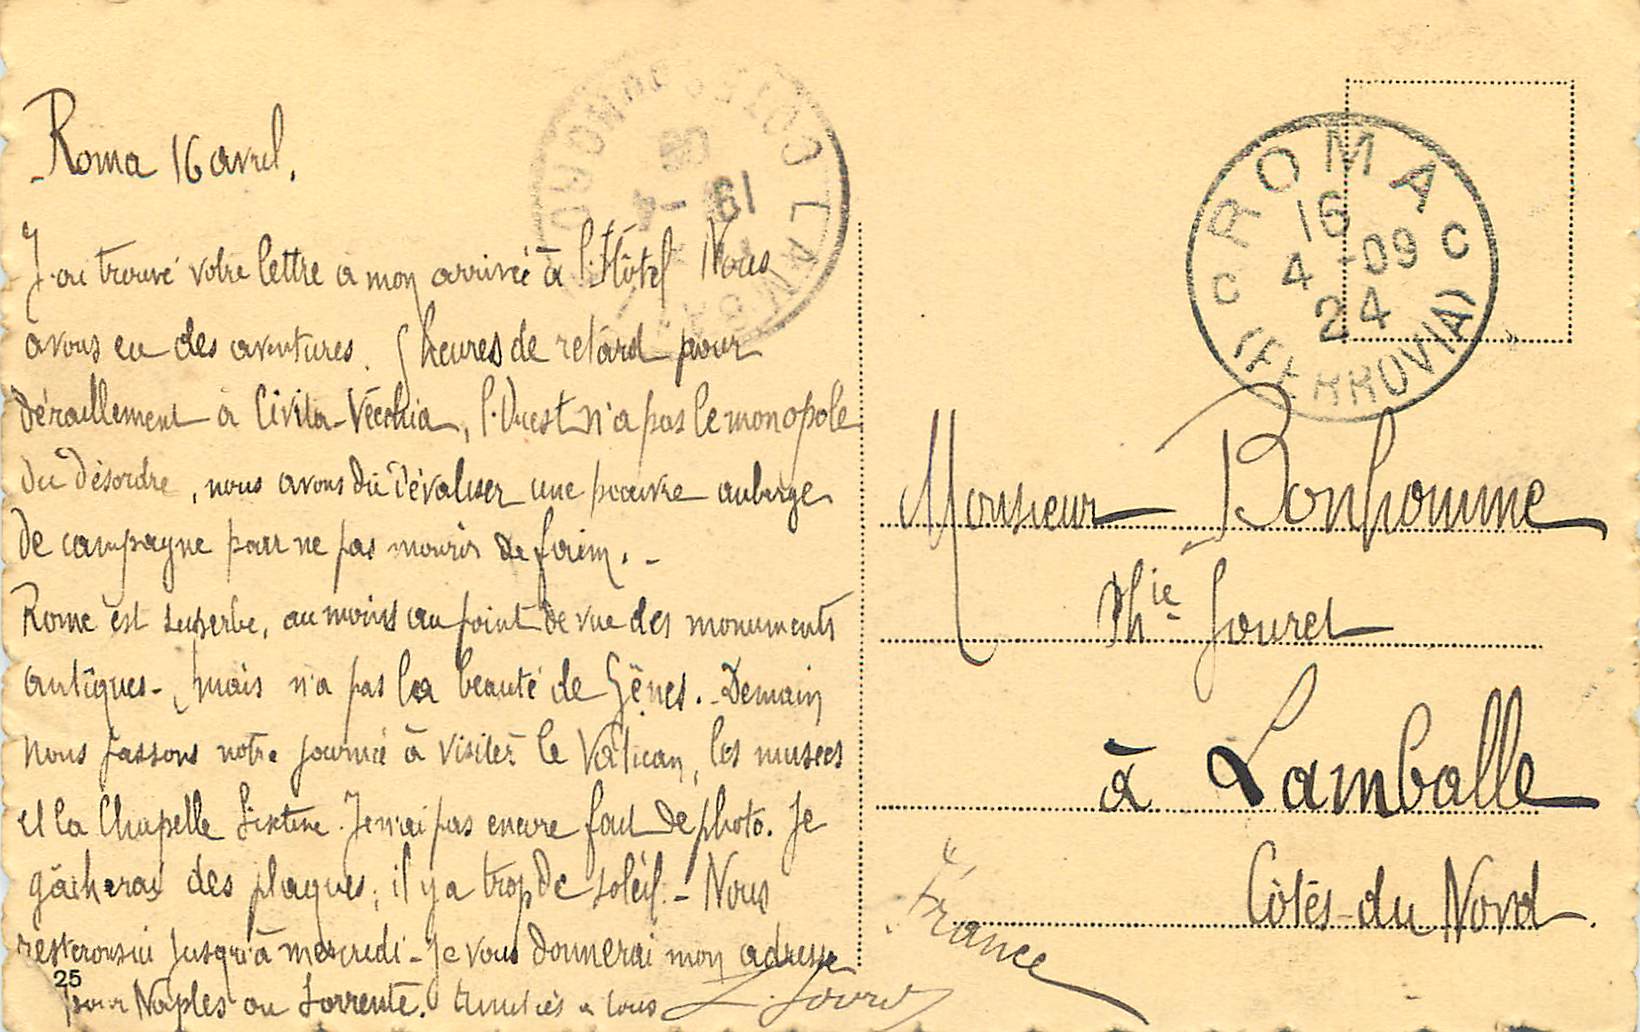 Roma 16 avril.
J'ai trouvé votre lettre à mon arrivée à l'Hôtel Nous
avons eu des aventures. 5 heures de retard pour
déraillement à Civita-Vecchia, l'Ouest n'a pas le monopole
du désordre, nous avons dû dévaliser une pauvre auberge
de campagne pour ne pas mourir de faim. -
Rome est superbe, au moins au point de vue des monuments
antiques -, mais n'a pas la beauté de Gênes. - Demain
nous passons notre journée à visiter le Vatican, les musées
et la Chapelle Sixtine. Je n'ai pas encore fait de photo. Je
gâcherai des plaques, il y a trop de soleil. - Nous
resterons ici jusqu'à mercredi - je vous donnerai mon adresse
pour Naples ou Sorrente. Amitiés à tous
25
COTES DU NORD
19 -4
09
LAMBALLE
ROMA
16
4 -09
24
C C
(FERROVIA)
Monsieur Bonhomme
Phie Jouret
à Lamballe
Côtes-du Nord.
France